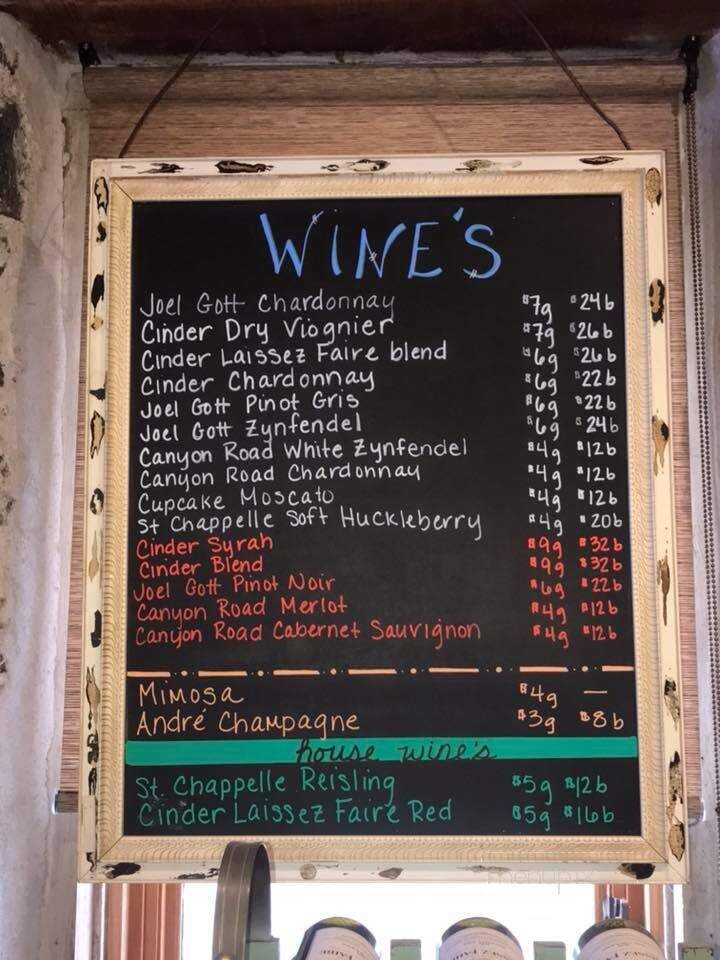 WINE'S
Joel Gott Chardonnay $7g $24b
Cinder Dry Viognier $7g $26b
Cinder Laissez Faire blend $6g $26b
Cinder Chardonnay $6g $22b
Joel Gott Pinot Gris $6g $22b
Joel Gott Zynfendel $6g $24b
Canyon Road White Zynfendel $4g $12b
Canyon Road Chardonnay $4g $12b
Cupcake Moscato $4g $12b
St Chappelle Soft Huckleberry $4g $20b
Cinder Syrah $9g $32b
Cinder Blend $9g $32b
Joel Gott Pinot Noir $6g $22b
Canyon Road Merlot $4g $12b
Canyon Road Cabernet Sauvignon $4g $12b
Mimosa $4g —
André Champagne $3g $8b
house wine's
St. Chappelle Reisling $5g $12b
Cinder Laissez Faire Red $5g $16b